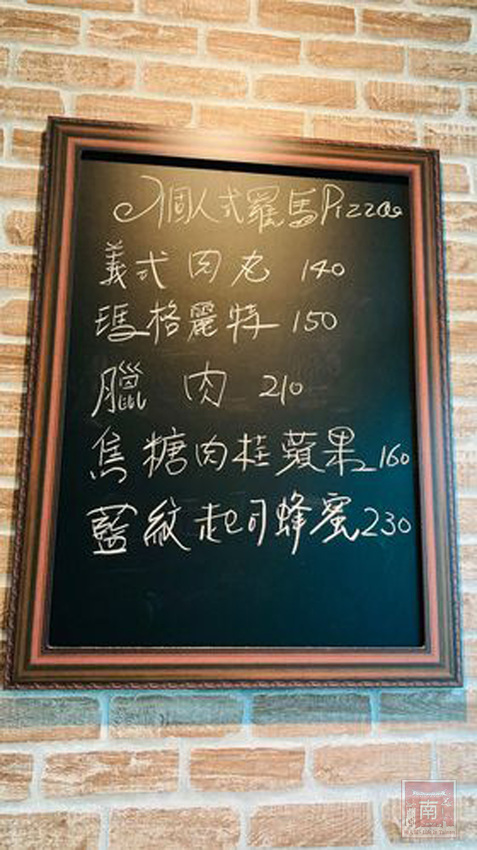 個人式羅馬Pizza
義式肉丸 140
瑪格麗特 150
臘肉 210
焦糖肉桂蘋果 160
藍紋起司蜂蜜 230
南